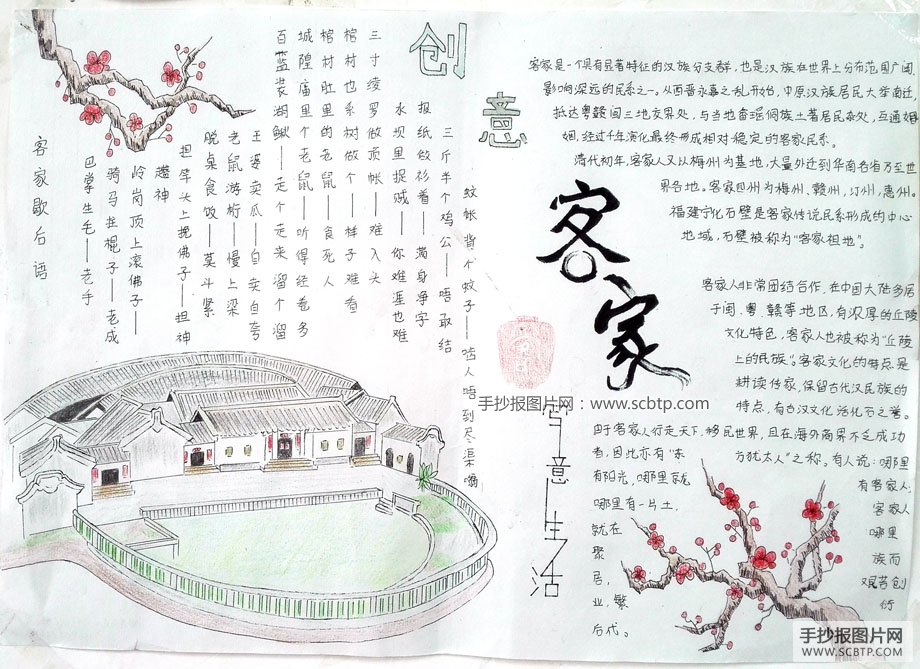 创
意
客家歇后语
巴掌生毛——老手
骑马拄棍子——老成
岭岗顶上滚佛子——
神
担竿头上挽佛子——坦神
脱桌食饭——莫斗紧
老鼠游桁——慢上梁
王婆卖瓜——自卖自夸
百蓝装湖鳅——走个走来溜个溜
城隍庙里个老鼠——听得经卷多
棺村肚里的老鼠——食死人
棺村也系树做个——样子难看
三寸绫罗做顶帐——难入头
水坝里捉贼——你难涯也难
报纸做衫着——满身净字
三斤半个鸡公——唔敢结
蚊帐背个蚊子——人唔到尽渠嗡
客家
写意生活
客家是一个具有显著特征的汉族分支群，也是汉族在世界上分布范围广阔、
影响深远的民系之一。从西晋永嘉之乱开始，中原汉族居民大举南迁，
抵达粤赣闽三地交界处，与当地畲瑶侗族土著居民杂处，互通婚
姻，经过千年演化最终形成相对稳定的客家民系。
清代初年，客家人又以梅州为基地，大量外迁到华南各省乃至世
界各地。客家四州为梅州、赣州，汀州，惠州。
福建宁化石壁是客家传说民系形成的中心
地域，石壁被称为“客家祖地”。
客家人非常团结合作，在中国大陆多居
于闽、粤、赣等地区，有浓厚的丘陵
文化特色，客家人也被称为“丘陵
上的民族”。客家文化的特点是
耕读传家，保留古代汉民族的
特点，有古汉文化活化石之誉。
由于客家人行走天下，移民世界，且在海外商界不乏成功
者，因此亦有“东方犹太人”之称。有人说：哪里
有阳光，哪里就有客家人，
哪里有一片土，客家人
就在哪里
聚族而
居，艰苦创
业，繁衍
后代。
手抄报图片网：www.scbtp.com
手抄报图片网
WWW.SCBTP.COM